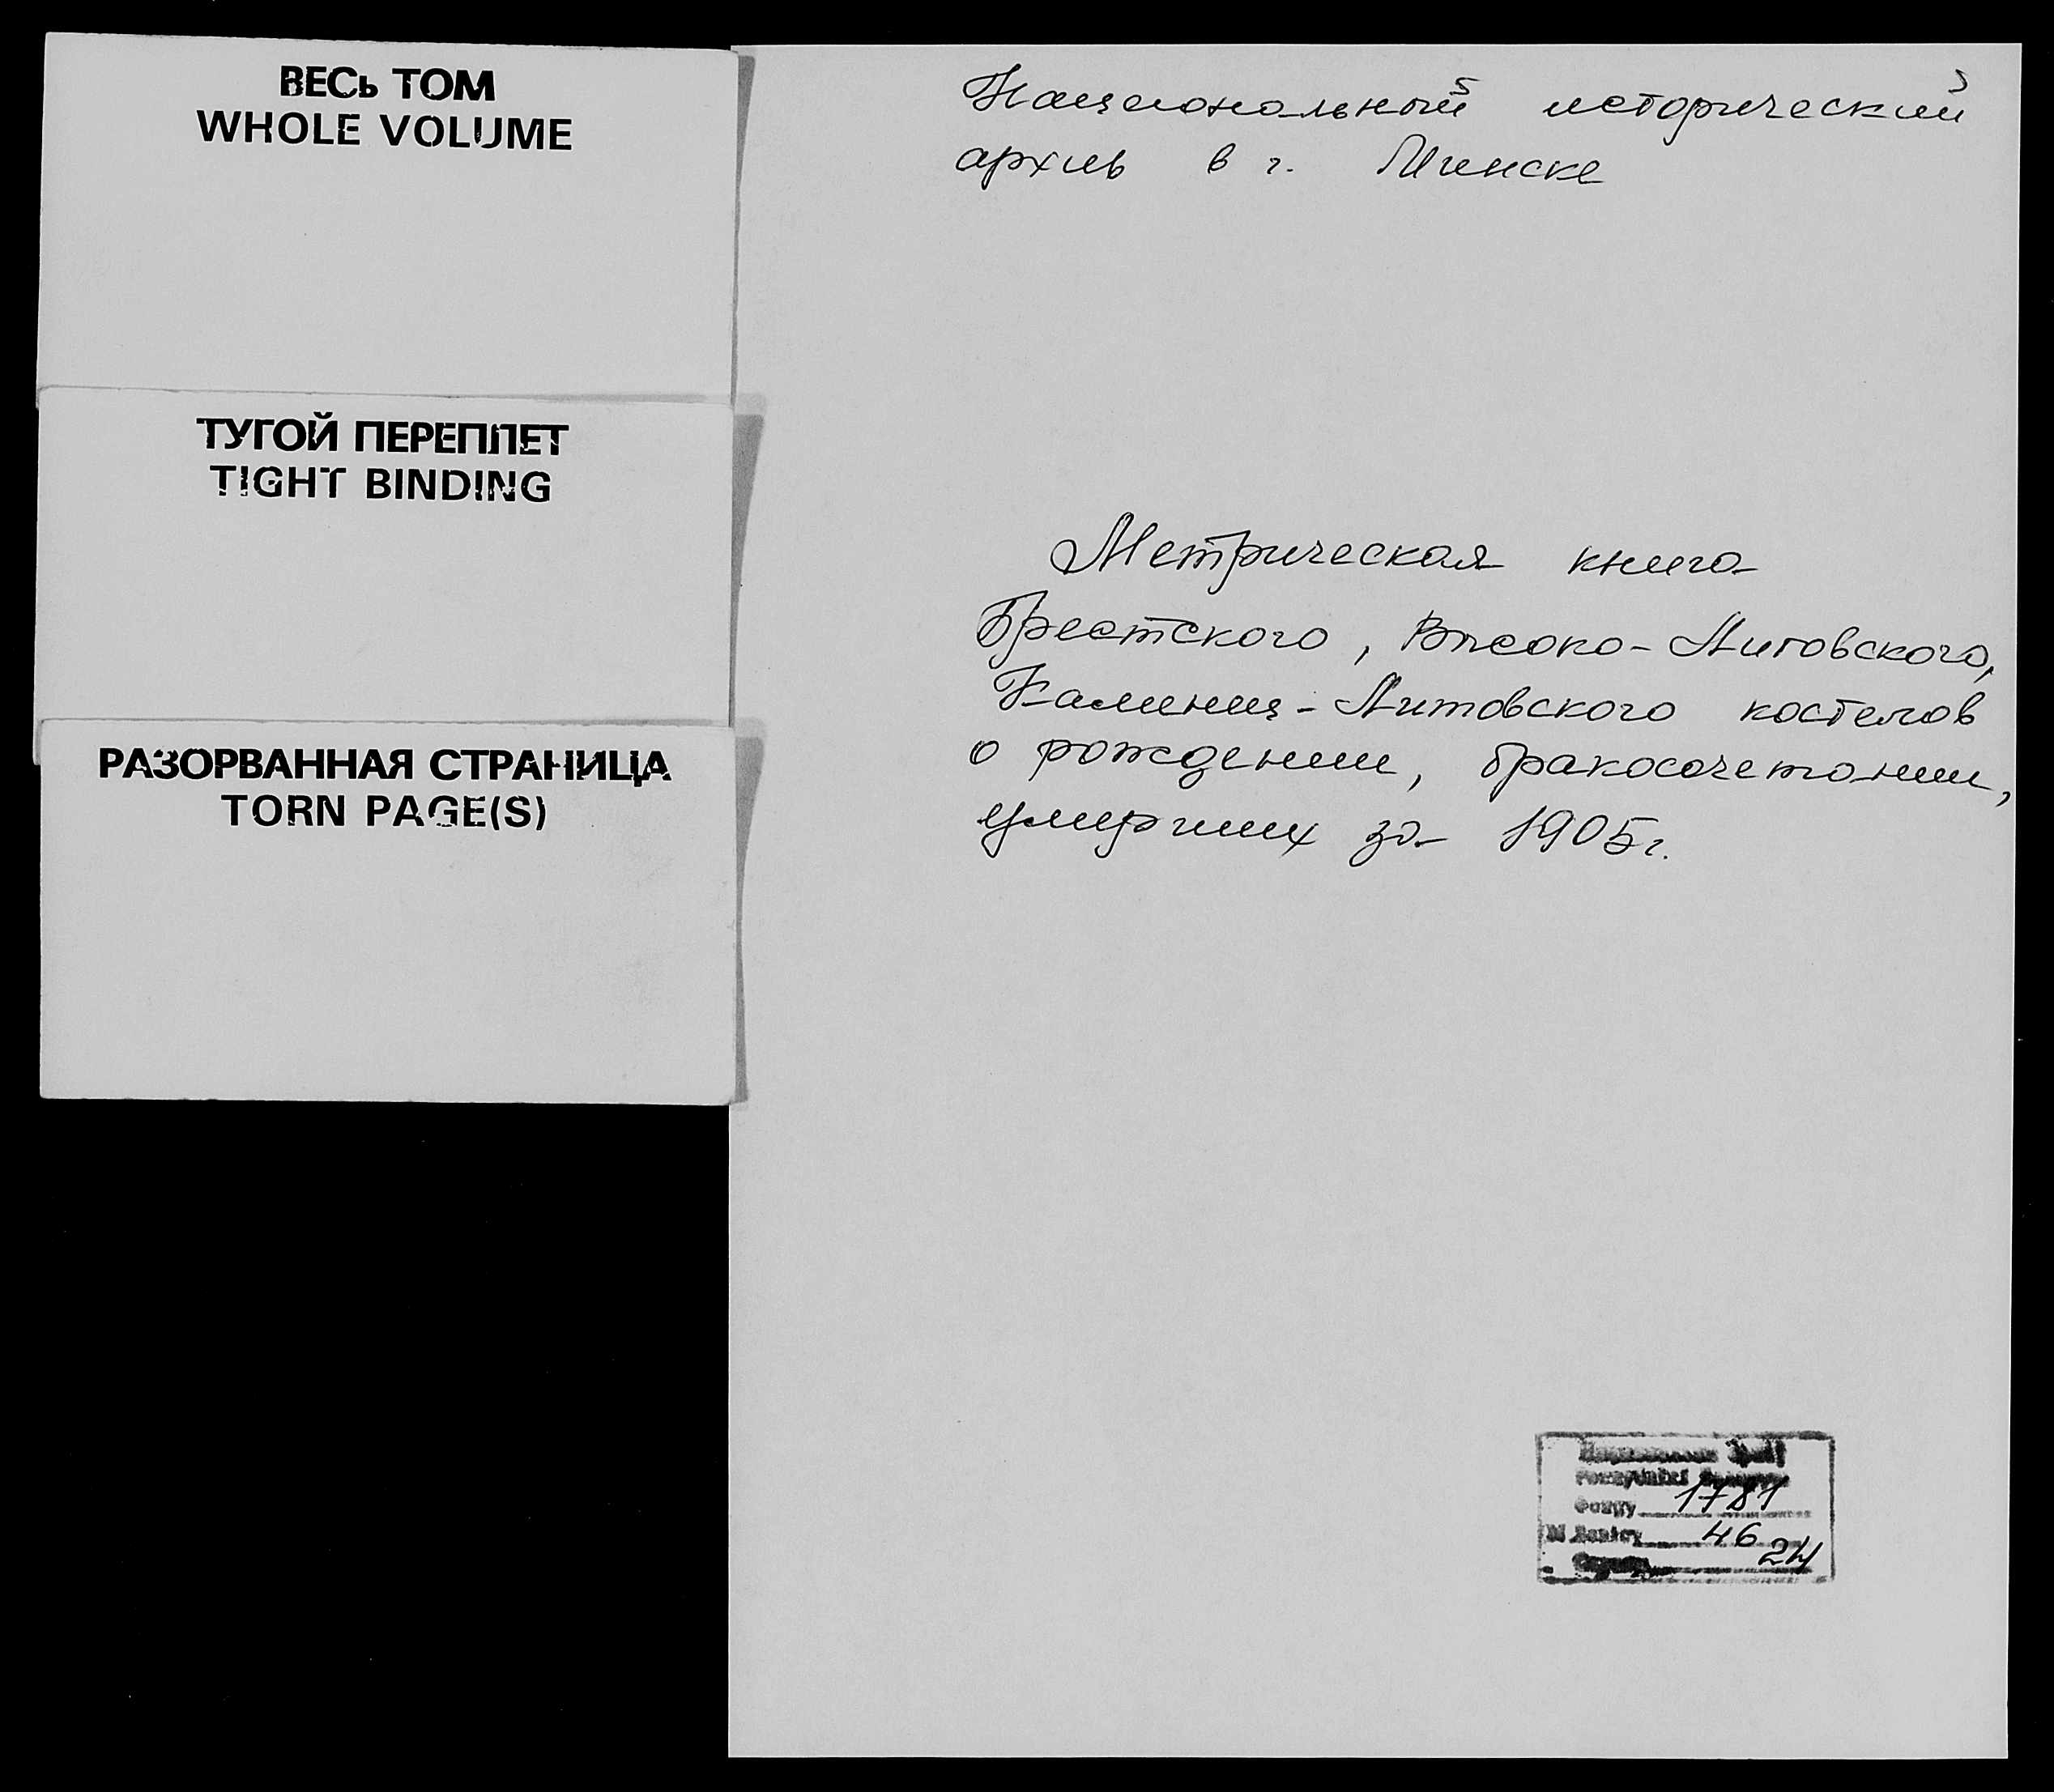 ВЕСЬ ТОМ
WHOLE VOLUME
ТУГОЙ ПЕРЕПЛЕТ
TIGHT BINDING
РАЗОРВАННАЯ СТРАНИЦА
TORN PAGE(S)
Национальный исторический
архив в г. Минске
Метрическая книга
Брестского, Высоко-Литовского,
Каменец-Литовского костелов
о рождении, бракосочетании,
умерших за 1905г.
Фонду 1781
46
24